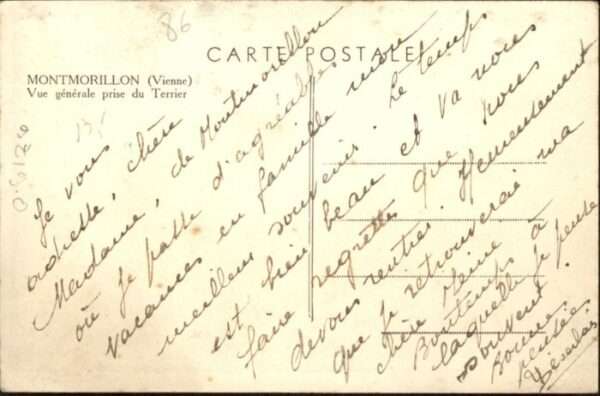 86
CARTE POSTALE
MONTMORILLON (Vienne)
Vue générale prise du Terrier
Je vous
adresse, chère
Madame, de Montmorillon
où je passe d'agréables
vacances en famille mon
meilleur souvenir. Le temps
est bien beau et va nous
faire regretter que nous
devons rentrer. Heureusement
que je retrouverai ma
chère
Bontemps à
laquelle je pense
souvent.
Bonnes
pensées